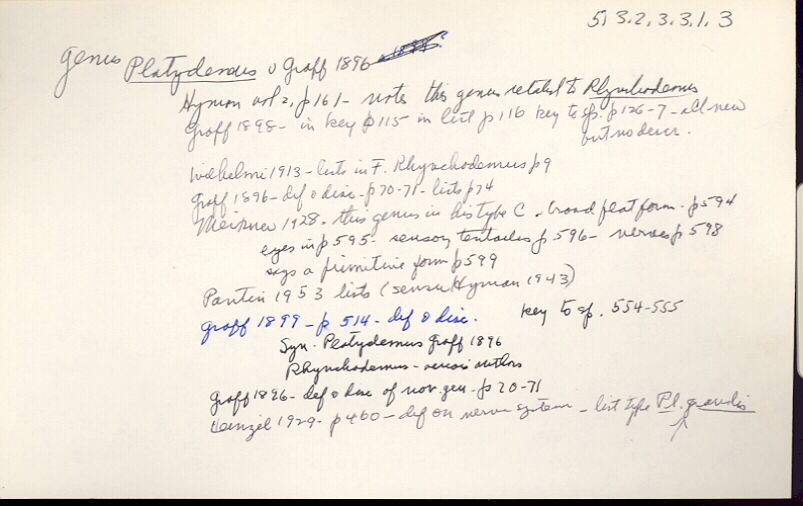 5, 3.2, 3.3.1.3
Genus Platydemus v Graff 1896
Hyman vol 2, p161 - notes this genus related to Rhynchodemus
Graff 1898 - in key p115 in list p116 key to sp. p126-7 - all new
but no descr.
Wilhelmi 1913 - lists in F. Rhynchodemus p9
Graff 1896 - def & disc - p70-71 - lists p74
Meixner 1928 - this genus in his type C - broad flat form - p594
eyes in p595 - sensory tentacles p596 - nerves p598
says a primitive form p599
Pantin 1953 lists (sensu Hyman 1943)
Graff 1899 - p 514 - def & disc. key to sp. 554-555
Syn. Platydemus Graff 1896
Rhynchodemus - auctors
Graff 1896 - def & disc of nov. gen - p 70-71
1929 - p460 - def on nerve system - list type Pl. grandis